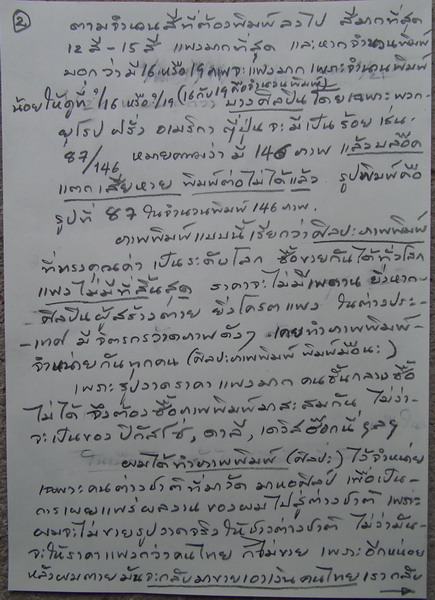 ②
ตามจำนวนสีที่ต้องพิมพ์ลงไป สีมากที่สุด
12 สี - 15 สี แพงมากที่สุด และหากจำนวนพิมพ์
บอกว่ามี 16 หรือ 19 ภาพจะแพงมาก เพราะจำนวนพิมพ์
น้อยให้ดูที่ 9/16 หรือ 9/19 (16 กับ 19 คือจำนวนพิมพ์) บางศิลปินโดยเฉพาะพวก-
ยุโรป ฝรั่ง อเมริกา ญี่ปุ่น จะมีเป็นร้อย เช่น-
87/146 หมายความว่า มี 146 ภาพ แล้วบล๊อค
แตก เสียหาย พิมพ์ต่อไม่ได้แล้ว รูปพิมพ์คือ
รูปที่ 87 ในจำนวนพิมพ์ 146 ภาพ.
ภาพพิมพ์แบบนี้เรียกว่าศิลปะภาพพิมพ์
ที่ทรงคุณค่า เป็นระดับโลก ซื้อขายกันได้ทั่วโลก
แพงไม่มีที่สิ้นสุด ราคาจะไม่มีเพดาน ยิ่งหาก-
-ศิลปินผู้สร้างตาย ยิ่งโครตแพง ในต่างประ-
-เทศ มีจิตรกรวาดภาพดังๆ เคยทำภาพพิมพ์-
จำหน่ายกันทุกคน (ศิลปะภาพพิมพ์ พิมพ์มือนะ)
เพราะรูปวาดราคาแพงมาก คนชั้นกลางซื้อ
ไม่ได้ จึงต้องซื้อภาพพิมพ์มาสะสมกัน ไม่ว่า-
จะเป็นของ ปิกัสโซ่, ดาลี, เดวิสฮ๊อกนี่ ฯลฯ
ผมได้ทำภาพพิมพ์ (ศิลปะ) ไว้จำหน่าย
เฉพาะคนต่างชาติที่มาวัด มาหอศิลป์ เพื่อเป็น-
การเผยแพร่ผลงานของผมไปสู่ต่างชาติ เพราะ
ผมจะไม่ขายรูปวาดจริงให้ชาวต่างชาติ ไม่ว่ามัน-
จะให้ราคาแพงกว่าคนไทย ก็ไม่ขาย เพราะอีกหน่อย
หลังผมตายมันจะกลับมาขายเอาเงินคนไทย เรากลับ